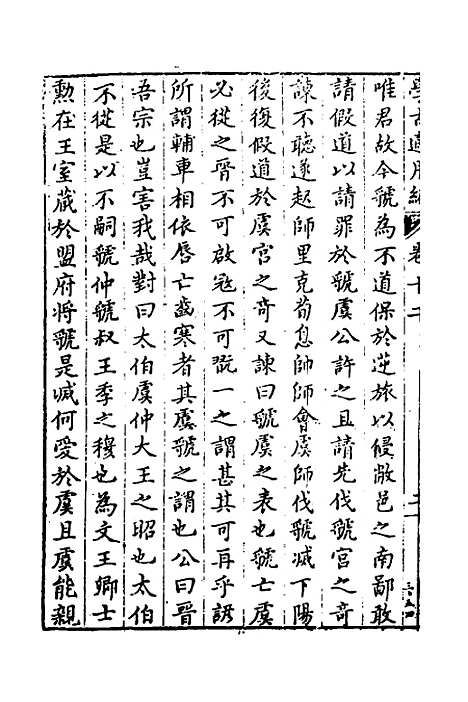 學古適用編 卷十二 二
唯君故今虢為不道保於逆旅以侵敝邑之南鄙敢
請假道以請罪於虢虞公許之且請先伐虢宮之奇
諫不聽遂起師里克荀息帥師會虞師伐虢滅下陽
後復假道於虞宮之奇又諫曰虢虞之表也虢亡虞
必從之晉不可啟寇不可翫一之謂甚其可再乎諺
所謂輔車相依唇亡齒寒者其虞虢之謂也公曰晉
吾宗也豈害我哉對曰太伯虞仲大王之昭也太伯
不從是以不嗣虢仲虢叔王季之穆也為文王卿士
勳在王室蔵於盟府將虢是滅何愛於虞且虞能親